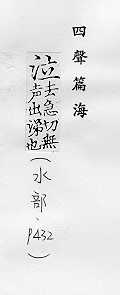 四聲篇海
泣去急切無
声出涕也
(水部、P432)